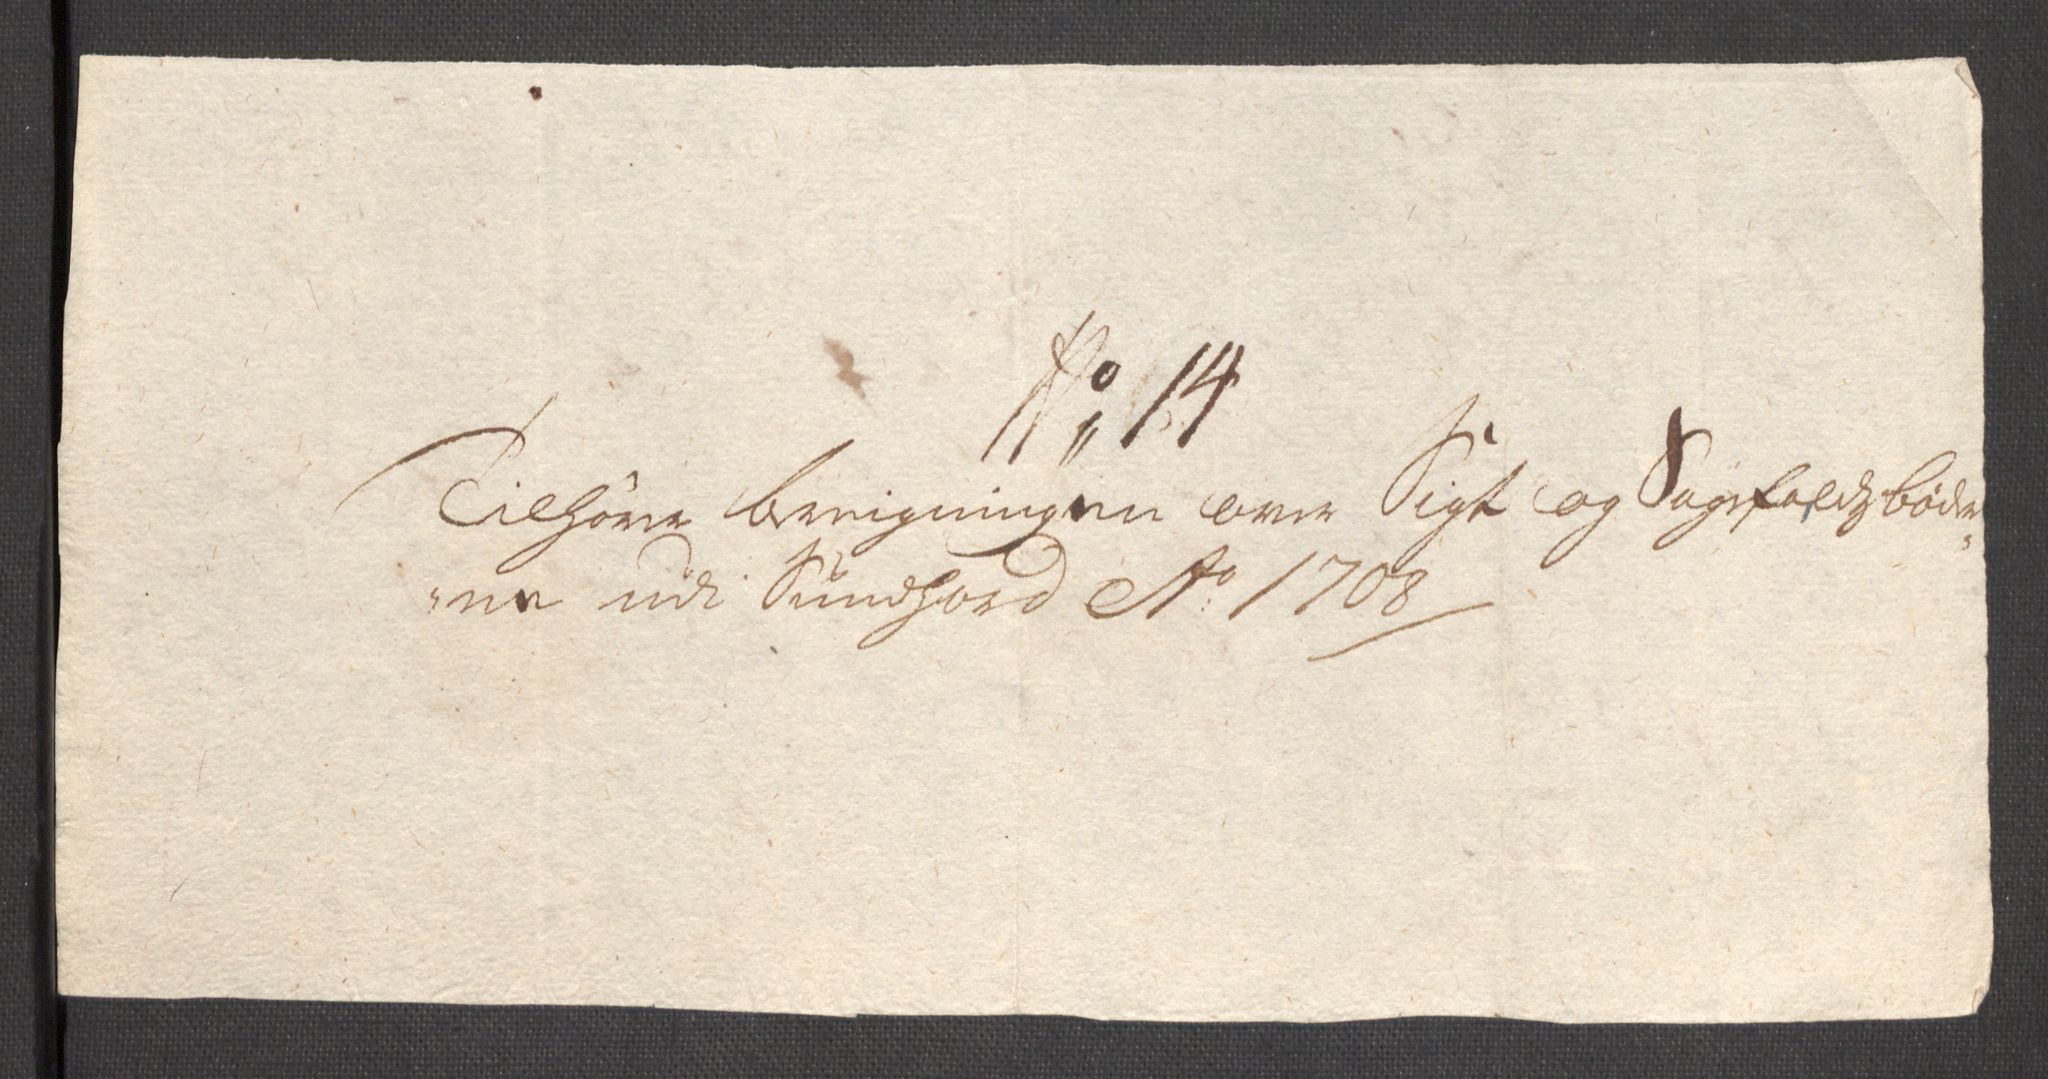 No: 14
Tilhörer bereigningen over Sigt og Sagefaldsböder-
-ne udi Sundfiord Ao: 1708